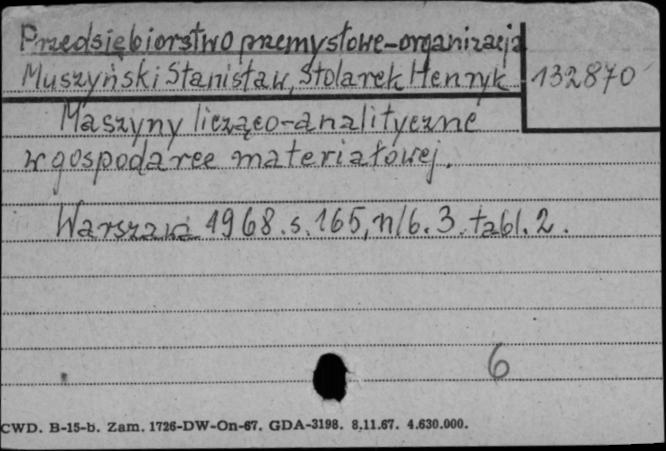 Przedsiębiorstwo przemysłowe-organizacja
Muszyński Stanisław, Stolarek Henryk
132870
Maszyny licząco-analityczne
w gospodarce materiałowej.
Warszawa 1968. s. 165, nlb. 3. tabl. 2.
6
CWD. B-15-b. Zam. 1726-DW-On-67. GDA-3198. 8.11.67. 4.630.000.